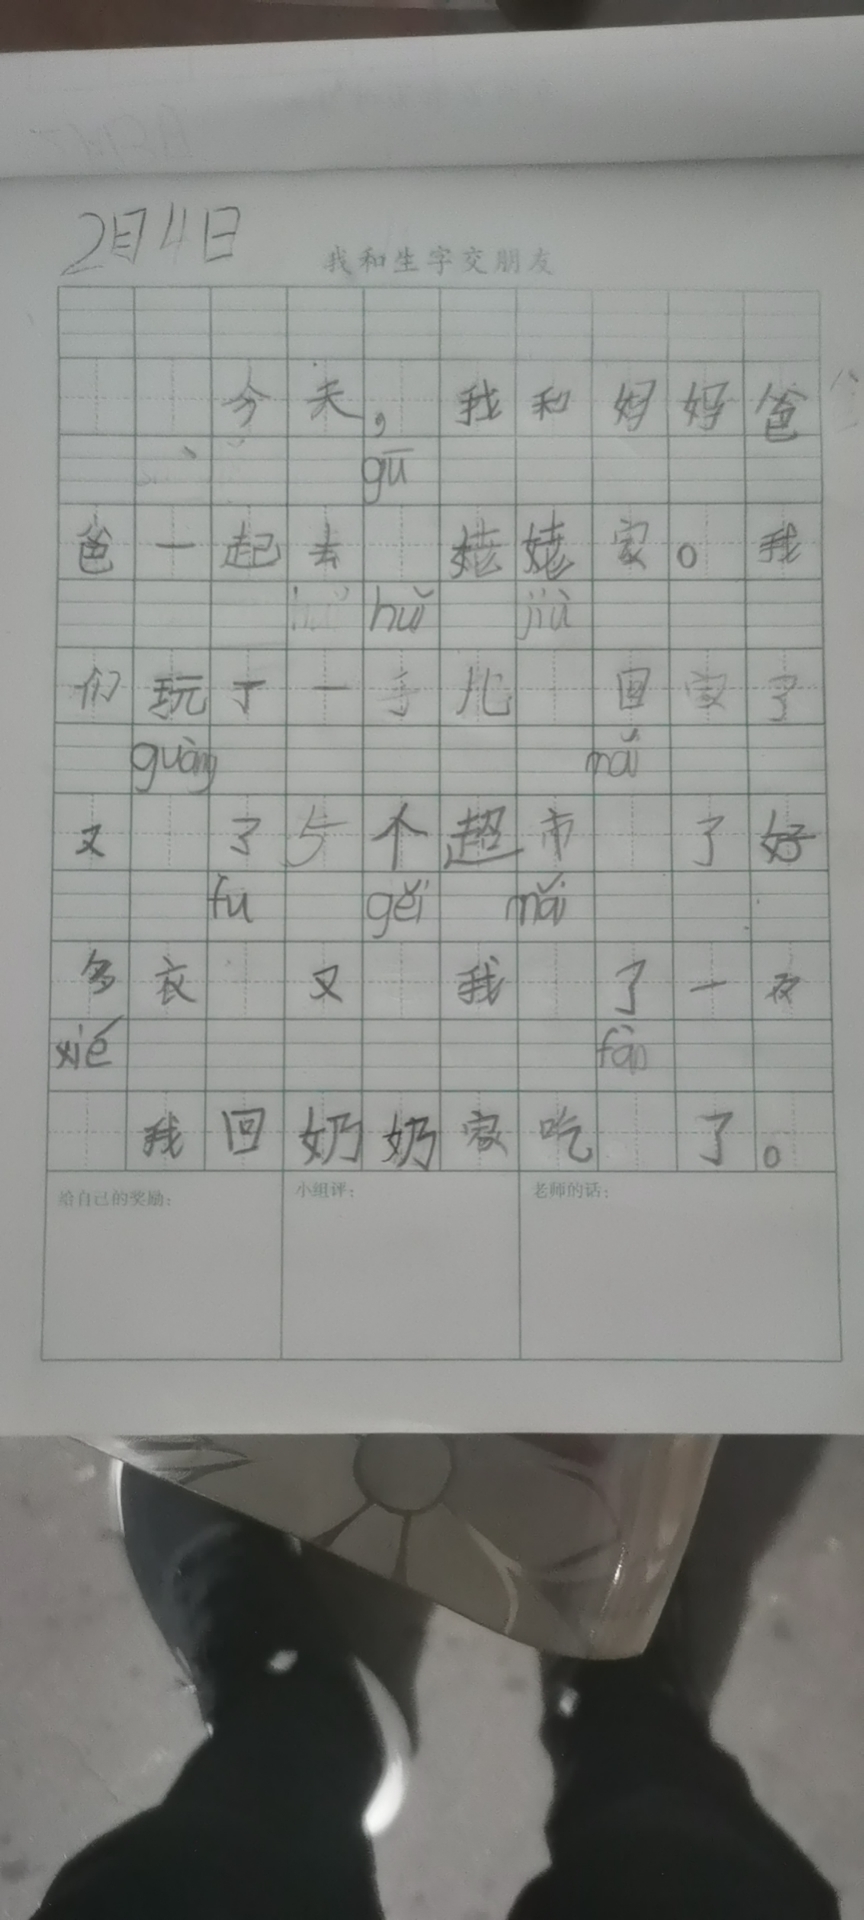 2月4日
我和生字交朋友
今天，我和妈妈爸
gū
爸一起去 姥姥家。我
huǐ jiù
们玩了一 儿 回家了
guàng mǎi
又 了5个超市 了好
fu gěi mǎi
多衣 又 我 了一双
xié fàn
我回奶奶家吃 了。
给自己的奖励：
小组评：
老师的话：